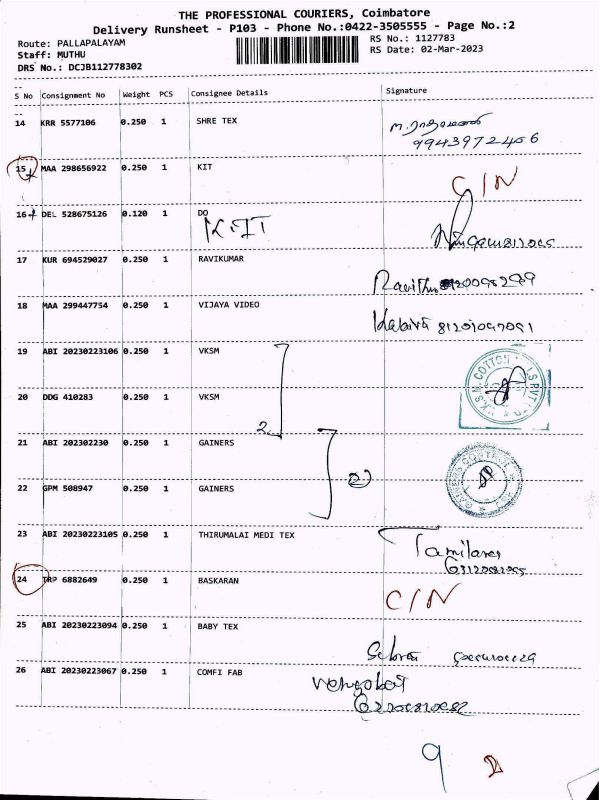 THE PROFESSIONAL COURIERS, Coimbatore
Delivery Runsheet - P103 - Phone No.:0422-3505555 - Page No.:2
Route: PALLAPALAYAM
RS No.: 1127783
Staff: MUTHU
RS Date: 02-Mar-2023
DRS No.: DCJB112778302
S No Consignment No Weight PCS Consignee Details Signature
14 KRR 5577106 0.250 1 SHRE TEX
9943972456
15 MAA 298656922 0.250 1 KIT
C/N
16 DEL 528675126 0.120 1 DO
KIT
17 KUR 694529027 0.250 1 RAVIKUMAR
18 MAA 299447754 0.250 1 VIJAYA VIDEO
19 ABI 20230223106 0.250 1 VKSM
20 DDG 410283 0.250 1 VKSM
2
21 ABI 202302230 0.250 1 GAINERS
22 GPM 508947 0.250 1 GAINERS
2
23 ABI 20230223105 0.250 1 THIRUMALAI MEDI TEX
24 TRP 6882649 0.250 1 BASKARAN
C/N
25 ABI 20230223094 0.250 1 BABY TEX
26 ABI 20230223067 0.250 1 COMFI FAB
9 2